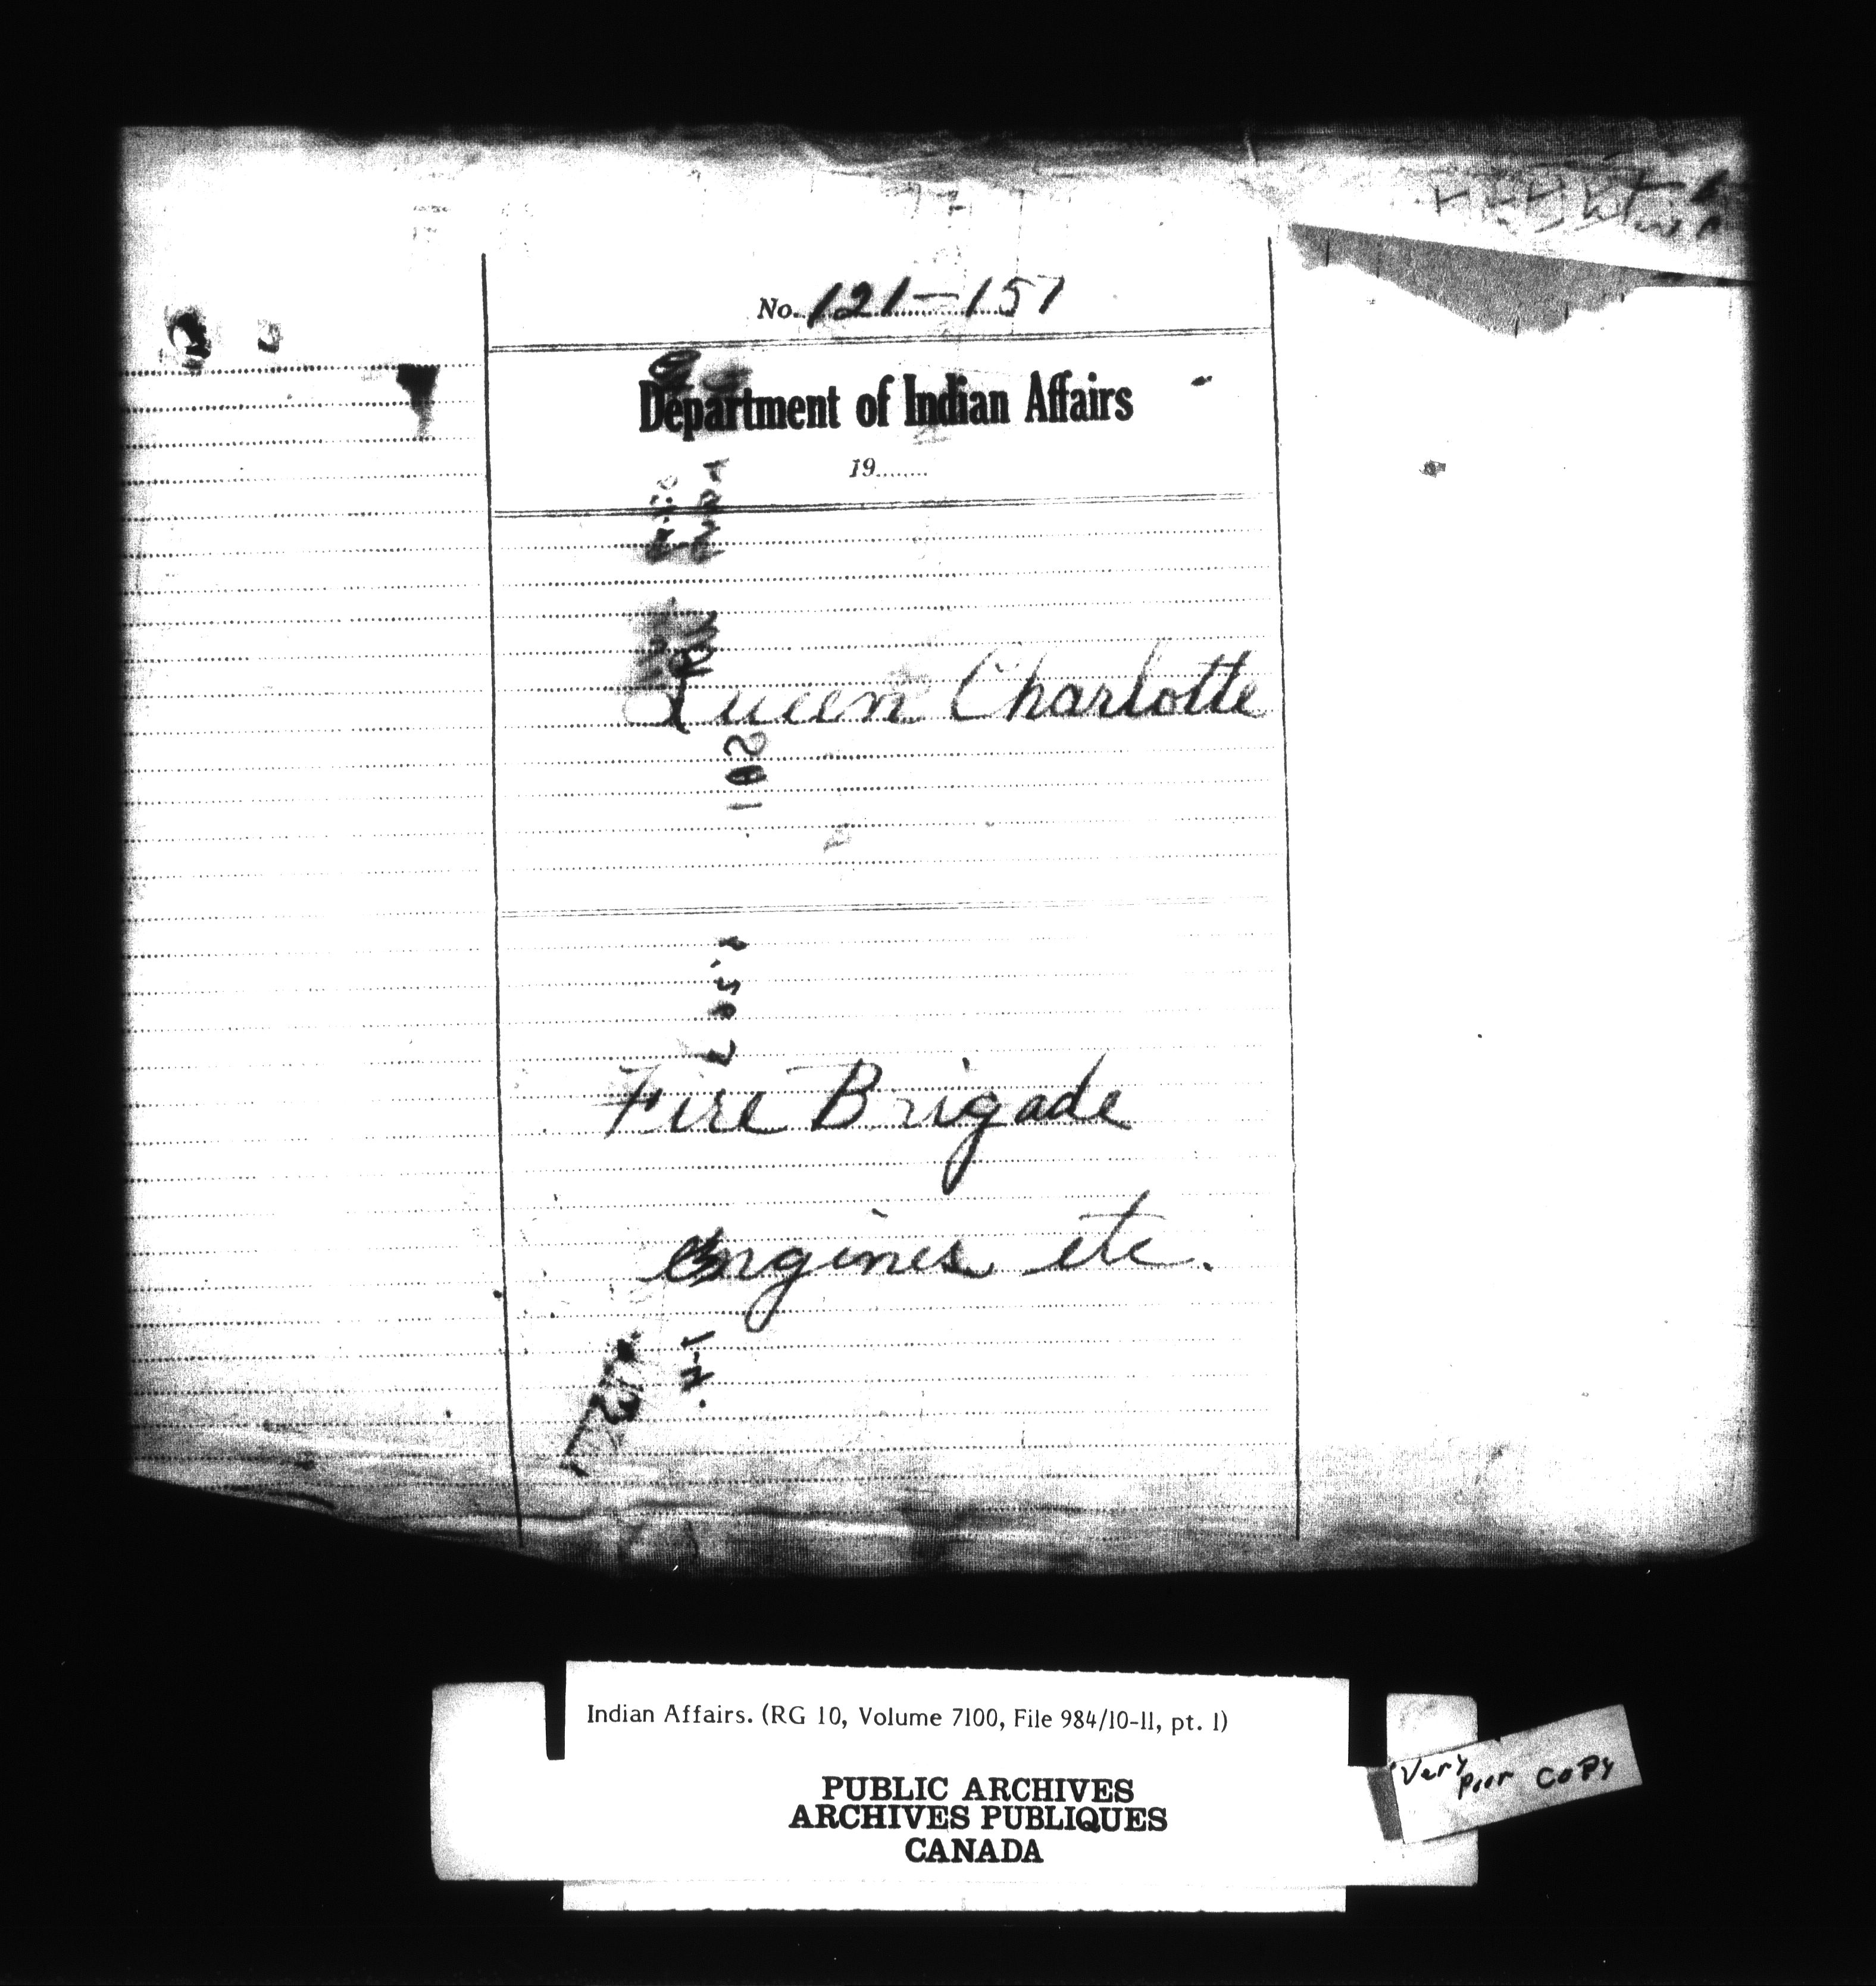 No. 121-157
Department of Indian Affairs
19
Queen Charlotte
Fire Brigade
engines etc.
Indian Affairs. (RG 10, Volume 7100, File 984/10-11, pt. 1)
PUBLIC ARCHIVES
ARCHIVES PUBLIQUES
CANADA
Very Poor COPY